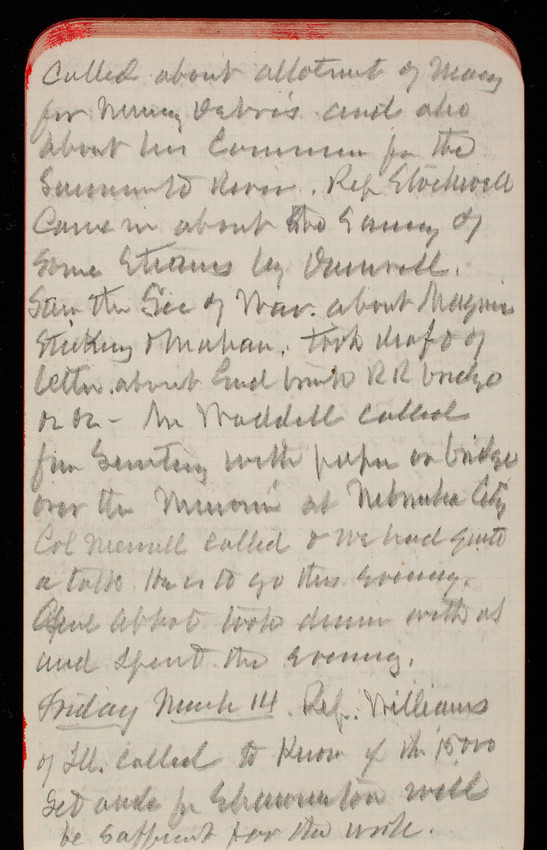 Called about allotment of money
for mining Debris and also
about his Commission for the
Sacramento River. Rep Stockwell
Came in about the Survey of
Some Streams by
Saw the Sec of War. about Maguire
Mahan. took draft of
letter about R R bridge
Mr Waddell called
from with paper on bridge
over the Missouri at Nebraska City
Col Merrill called & we had quite
a talk. He is to go this evening.
Abbot took dinner with us
and spent the evening.
Friday March 14. Rep. Williams
of Ill. called to know if the 15000
Set aside for Examination will
be sufficient for the work.